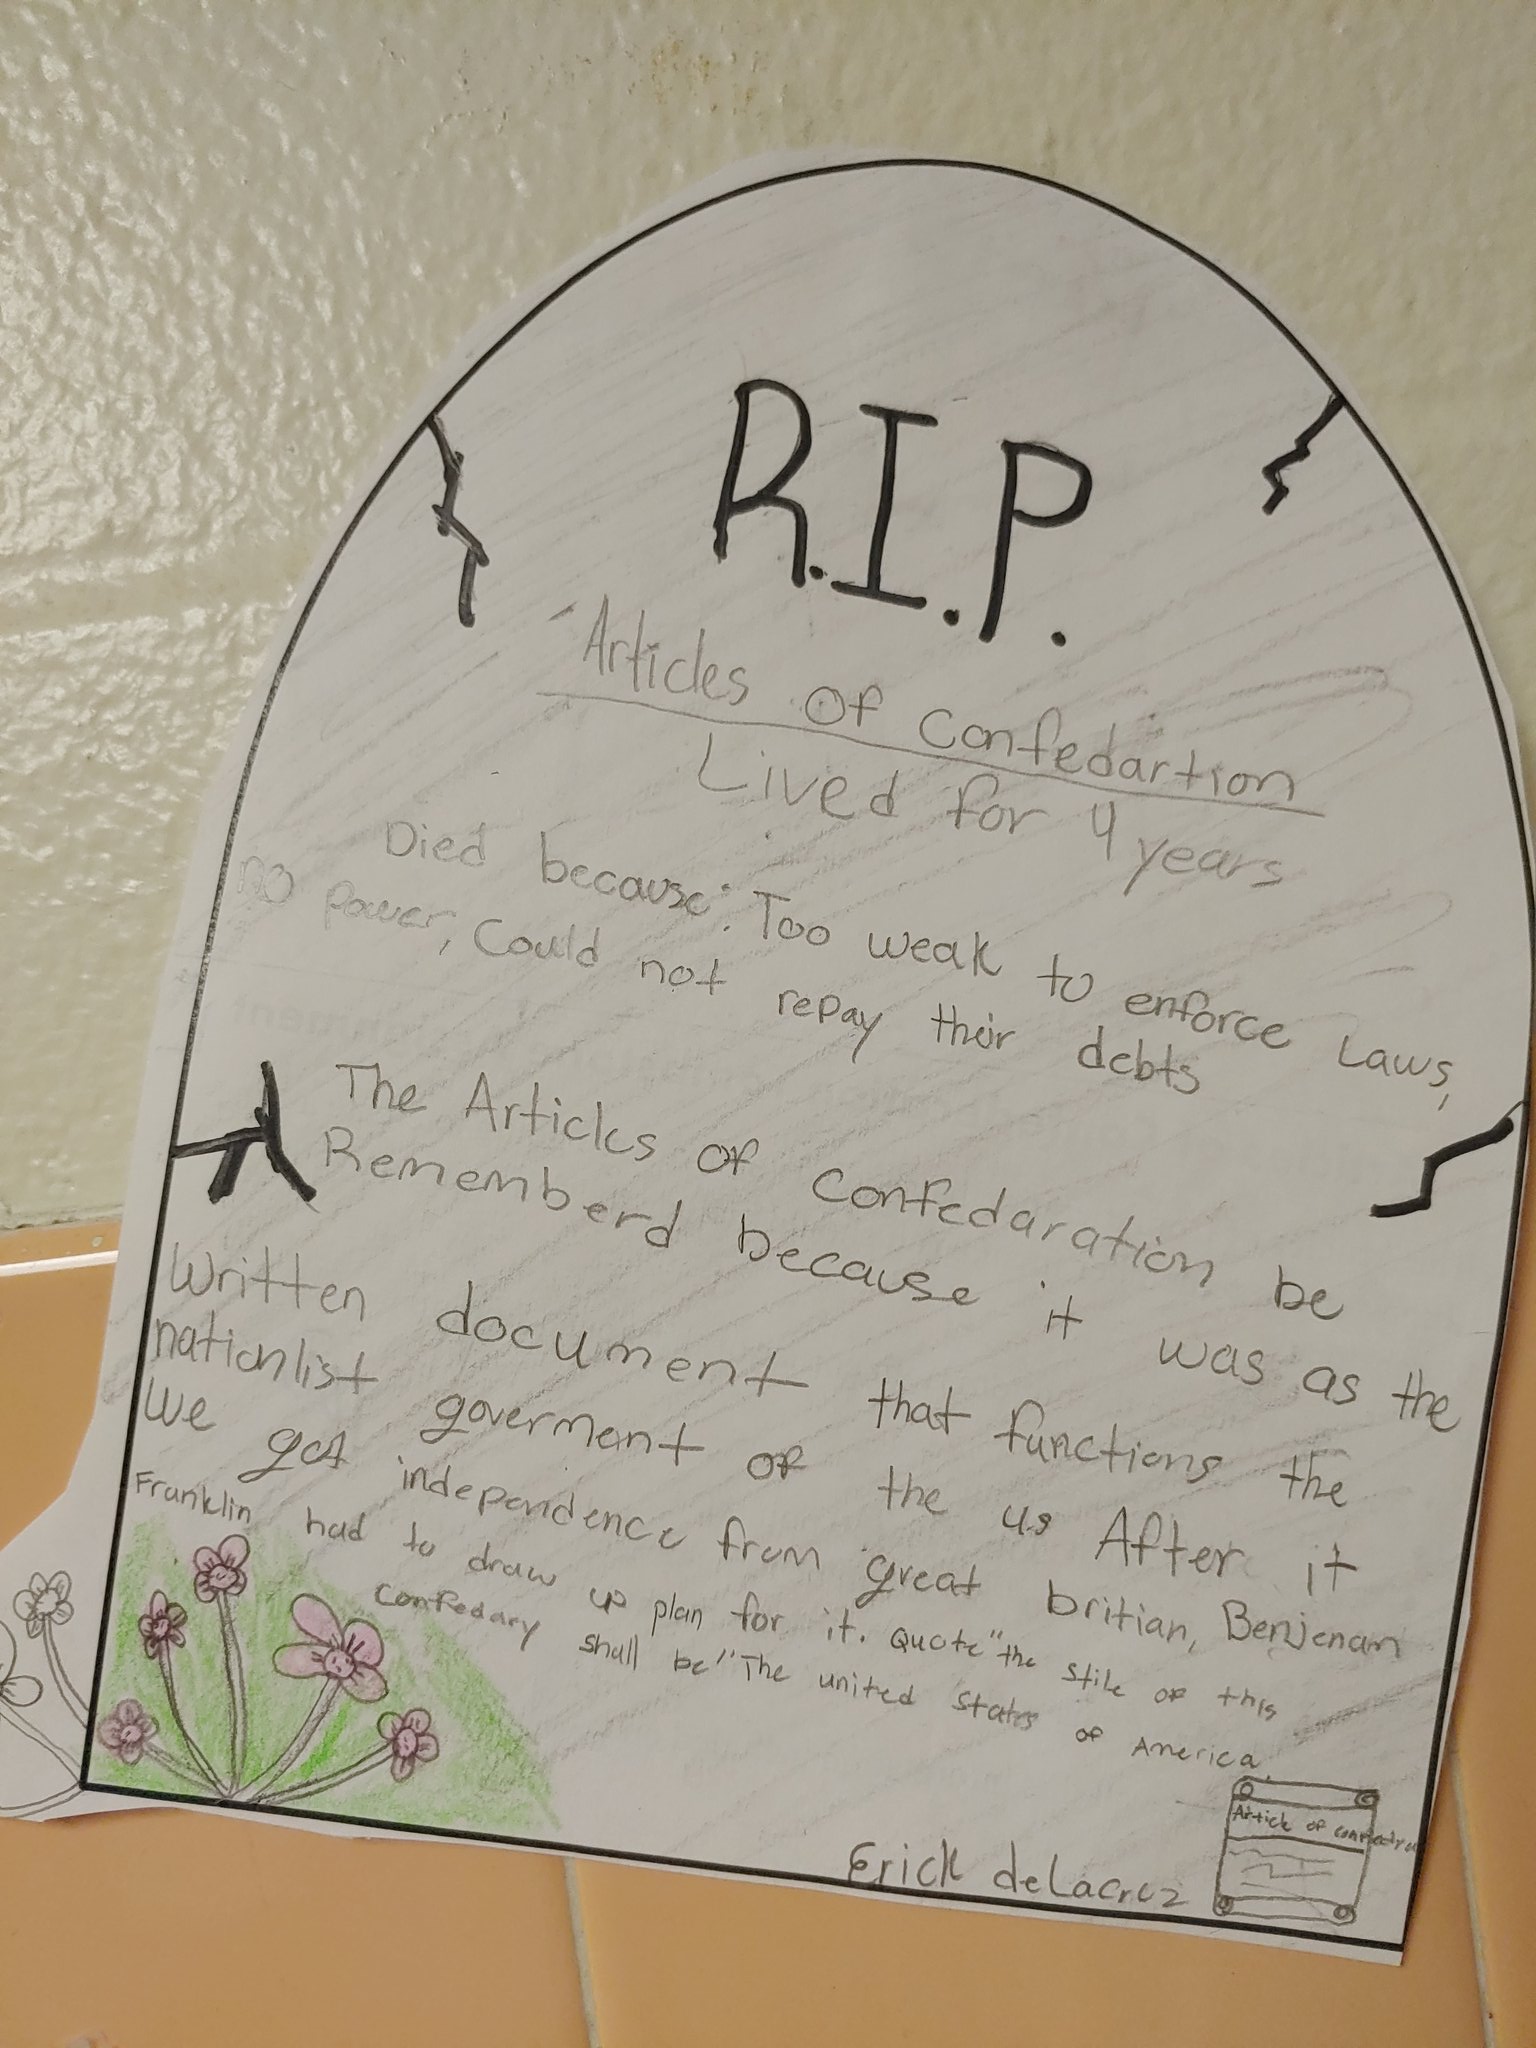 R.I.P.
Articles of Confedartion
Lived for 4 years
Died because: Too weak to enforce Laws,
no Power, Could not repay their debts
The Articles of Confedaration be
Rememberd because it was as the
Written document that functions the
nationlist goverment of the us After it
We got independence from great britian, Benjenam
Franklin had to draw up plan for it. Quote "the stile of this
Confedary shall be "The united states of America
Article of
Erick delacruz